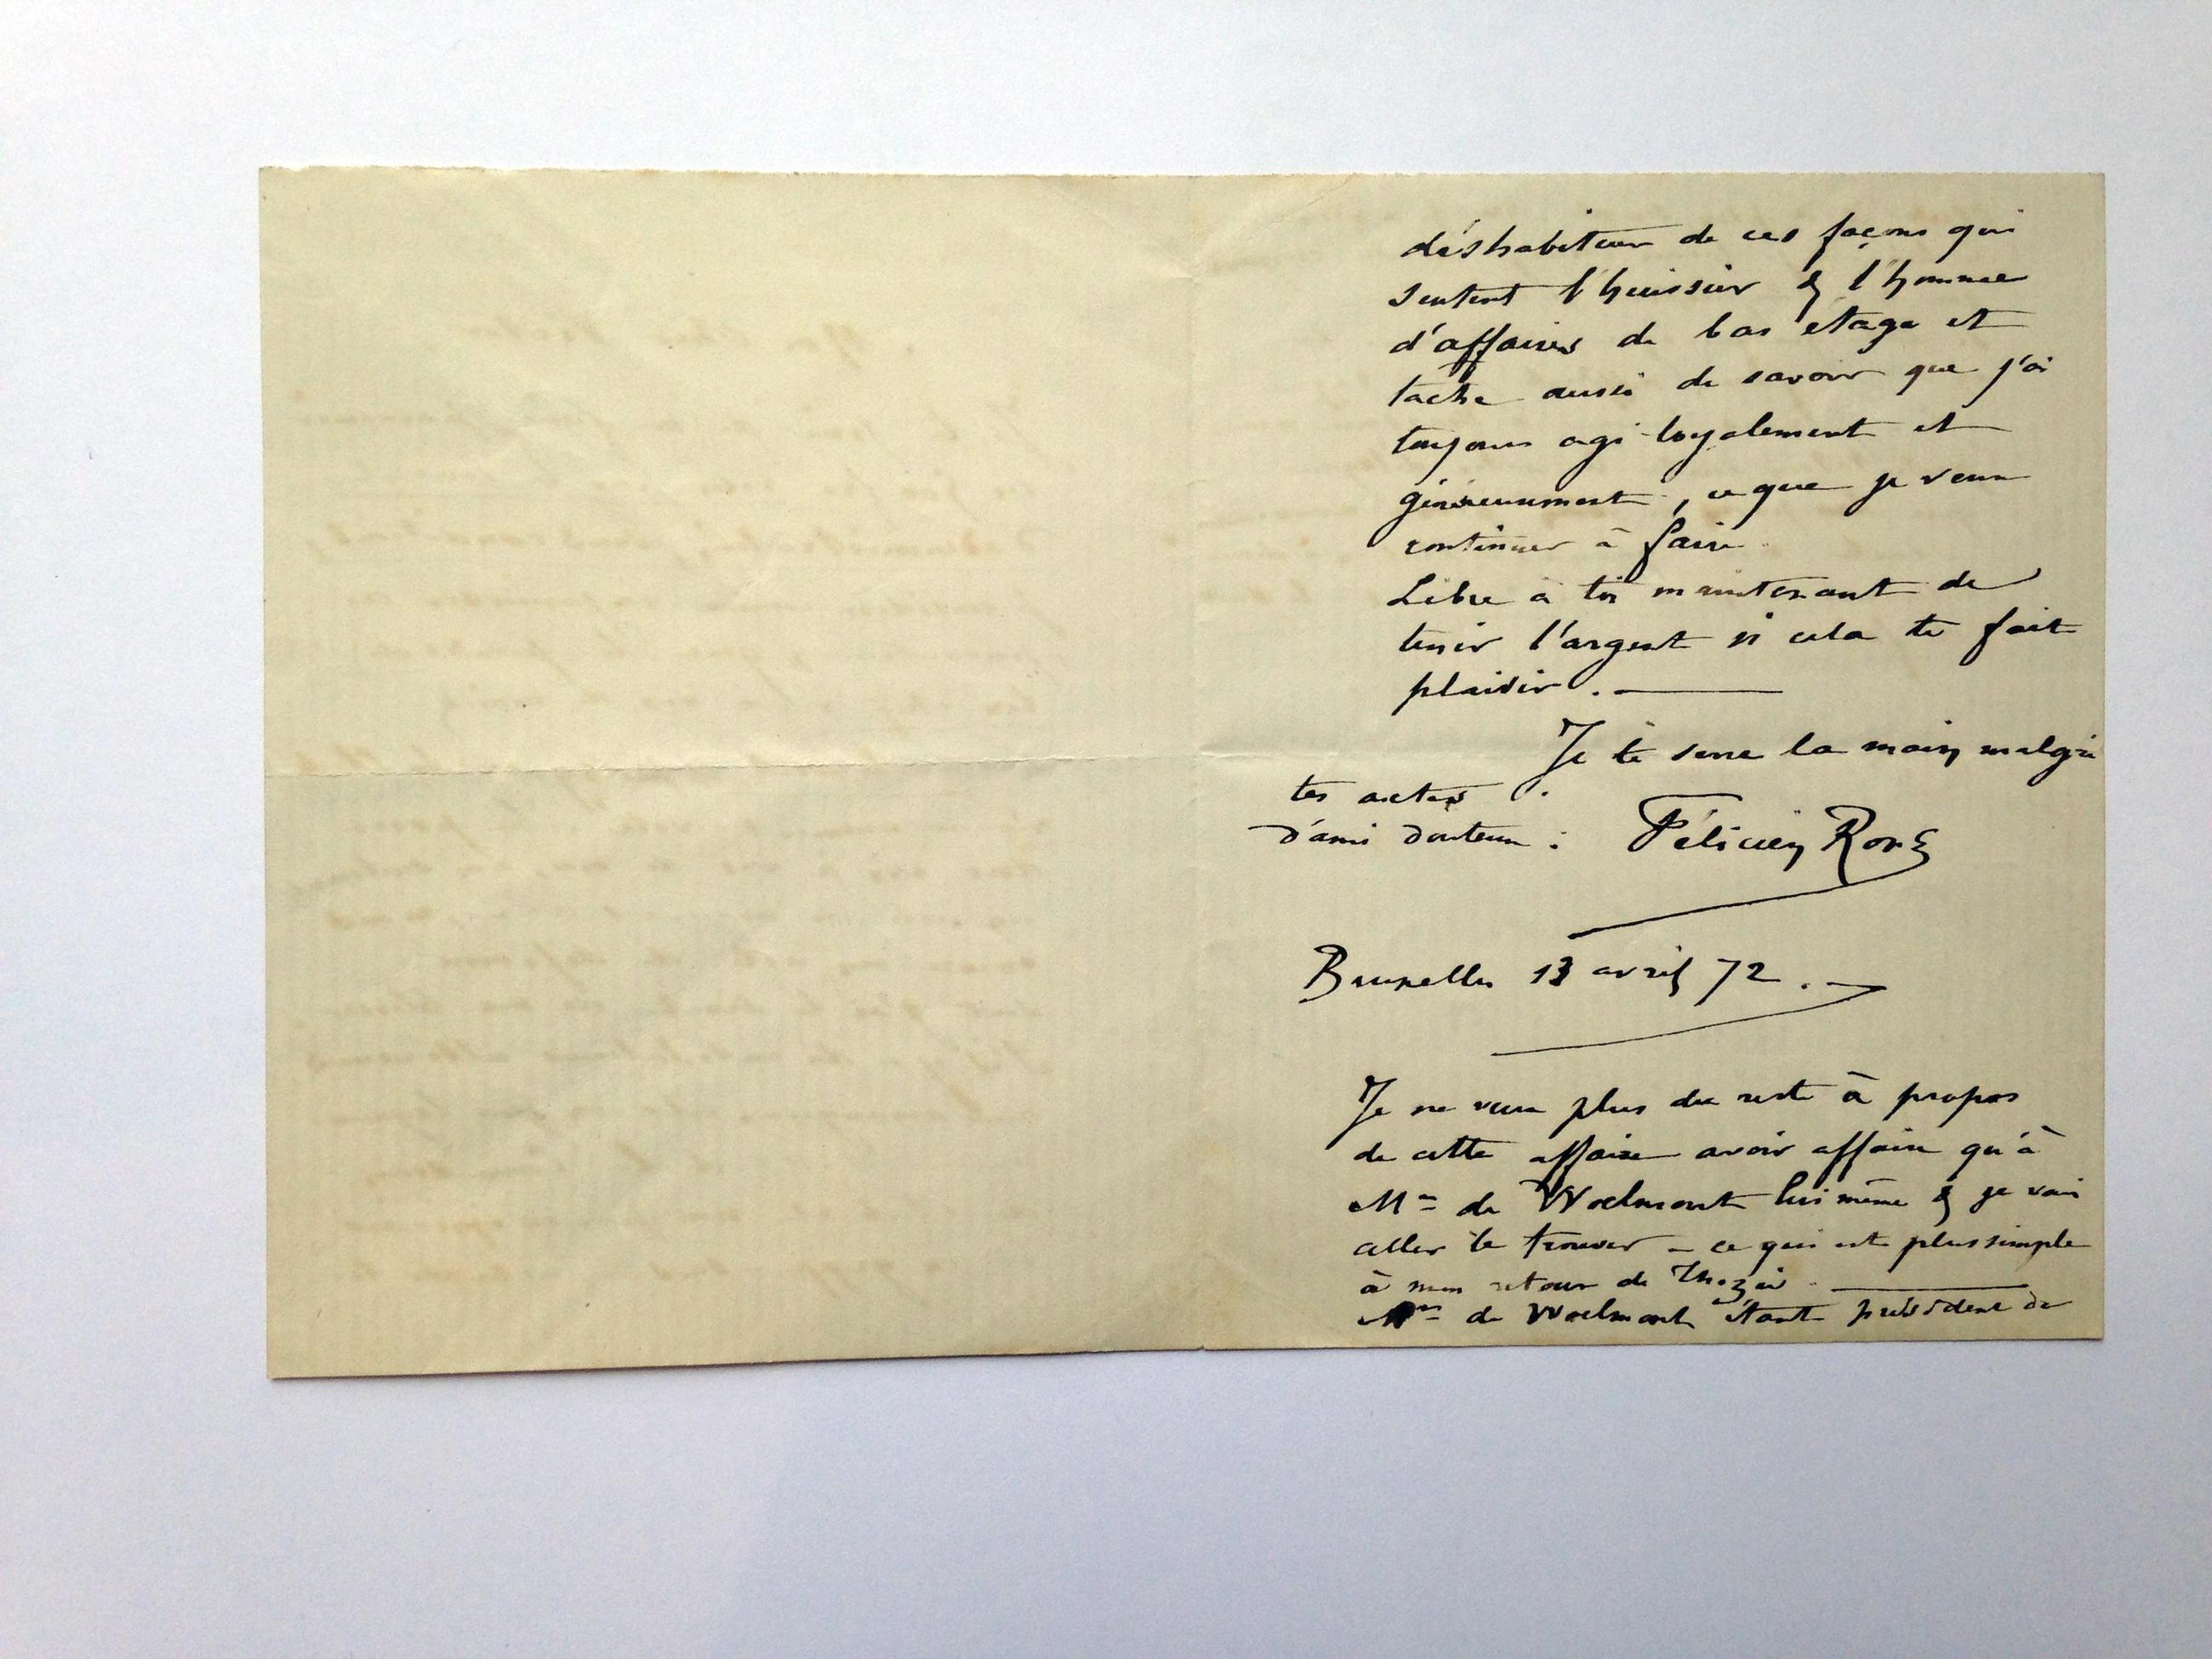 déshabituer de ces façons qui
sentent l'huissier & l'homme
d'affaires de bas etage et
tache aussi de savoir que j'ai
toujours agi loyalement et
généreusement, ce que je veux
continuer à faire.
Libre à toi maintenant de
tenir l'argent si cela te fait
plaisir. —
Je te serre la main malgré
tes actes
d'ami douteux : Félicien Rops
Bruxelles 13 avril 72. —
Je ne veux plus du reste à propos
de cette affaire avoir affaire qu'à
Mr de Woelmont lui même & je vais
aller le trouver – ce qui est plus simple
à mon retour de Thozée. —
Mr de Woelmont étant président de